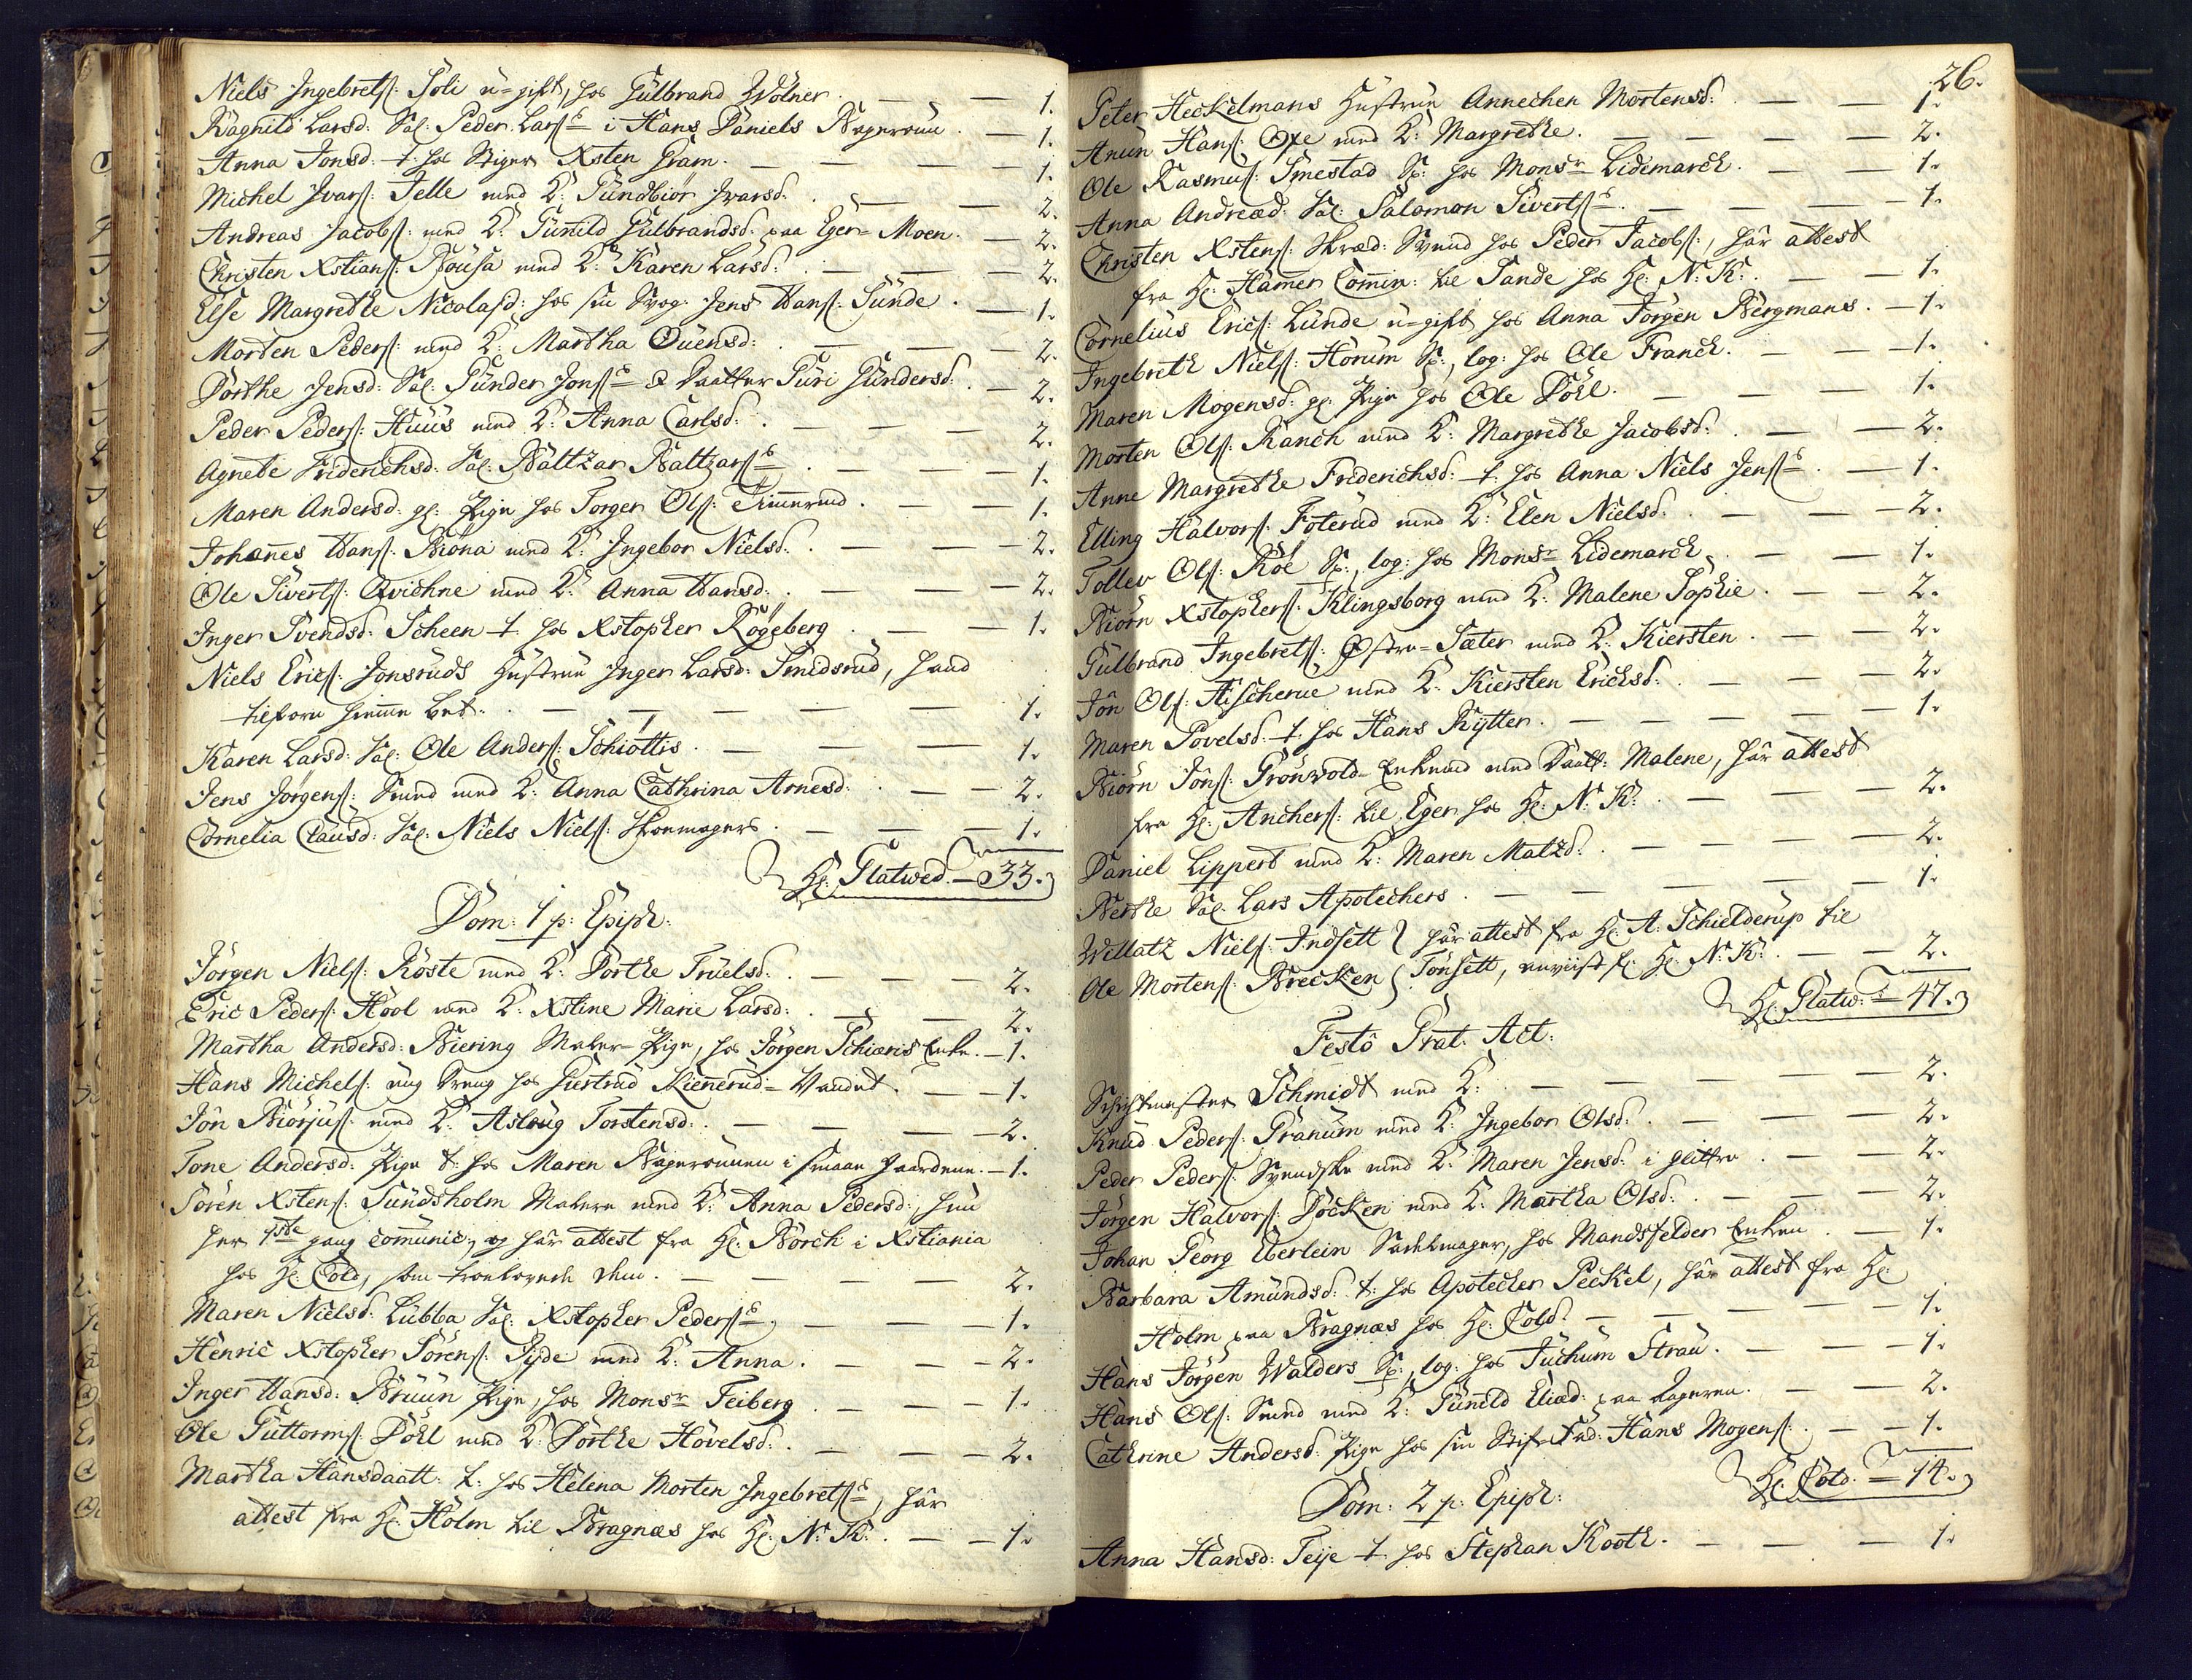 Niels Ingebretſ: Soli u-gift, hos Gülbrand Wölner. — — 1.
Ragnild Larsd: Sal: Peder Larſs i Hans Daniels Bageroün. — 1.
Anna Jonsd: t. hos Stiger Xsten Gram. — — — 1.
Michel Ivarſ: Telle med K: Gundbiör Ivarsd. — — 2.
Andreas Jacobſ: med K: Gunild Gülbrandsd: paa Eger-Moen. — 2.
Christen Xstianſ: Bousa med K: Karen Larsd: — — 2.
Else Margrethe Nicolasd: hos sin Svog: Jens Hansſ: Sünde. — 1.
Morten Pedersſ: med K: Martha Ouensd: — — 2.
Dorthe Jensd: Sal: Günder Jonſs & Daatter Guri Gündersd: — 2.
Peder Pedersſ: Huus med K: Anna Carlsd: — — — 2.
Agnete Friderichsd: Sal: Baltzar Baltzarſs — — 1.
Maren Andersd: gl: Pige hos Torger Olſ: Timerud. — — 1.
Johannes Hansſ: Biöna med K: Ingebor Nielsd: — — 2.
Ole Sivertſ: Qvidhne med K: Anna Hansd: — — 2.
Inger Svendsd: Scheen t. hos Xstopher Rögeberg. — — 1.
Niels Ericſ: Jonsruds Hustrue Inger Larsd: Smidsrud, hand
tilforn hiemme bet: — — — — 1.
Karen Larsd: Sal: Ole Andersſ: Schiöttis. — — — 1.
Jens Jörgensſ: Smed med K: Anna Cathrina Arnesd: — — 2.
Cornelia Clausd: Sal: Niels Nielsſ: Skoemagers. — — — 1.
Hr: Glatved. — 33.
Dom: 1 p: Epiph:
Jörgen Nielsſ: Röste med K: Dorthe Truelsd: — — 2.
Eric Pedersſ: Hool med K: Xstine Marie Larsd: — — 2.
Martha Andersd: Biering Maler-Pige, hos Jörgen Schiæris Enke. — 1.
Hans Michelsſ: ung Dreng hos Giertrud Kiennerud-Vandet. — — 1.
Jön Biörjusſ: med K: Aslaug Torstensd: — — — 2.
Tone Andersd: Pige t: hos Maren Bageroünen i smaae Gaardene. — 1.
Sören Xstensſ: Sündsholm Malere med K: Anna Pedersd:, hun
her 1ste gang comunic:, og har attest fra Hr: Börch i Xstiania
hos Hr: Told, som troelovede dem. — — — — 2.
Maren Nielsd: Lübba Sal: Xstopher Pedersſs — — — 1.
Henric Xstopher Sörensſ: Syde med K: Anna. — — — 2.
Inger Hansd: Bruun Pige, hos Monsr Feiberg — — — 1.
Ole Guttormsſ: Döhl med K: Dorthe Hövelsd: — — — 2.
Martha Hansdaatt: t: hos Helena Morten Ingebretsſs, har
attest fra Hr: Holm til Bragnæs hos Hr: N: K: — — 1.
26.
Peter Heckelmans Hustrue Annechen Mortensd: — — 1.
Anün Hansſ: Oxe med K: Margrethe. — — — 2.
Ole Rasmusſ: Smestad Sr: hos Monsr Lidemarch. — — 1.
Anna Andread: Sal: Salomon Sivertſs — — — 1.
Christen Xstensſ: Skræd: Svend hos Peder Jacobsſ:, har attest
fra Hr: Hamer Comin: til Sande hos Hr: N: K: — — 1.
Cornelius Ericſ: Lünde u-gift hos Anna Jörgen Bergmans. — 1.
Ingebreth Nielsſ: Horüm Sr:, log: hos Ole Franck. — — 1.
Maren Mogensd: gl: Pige hos Ole Döhl. — — 1.
Morten Olsſ: Ranch med K: Margrethe Jacobsd: — — 2.
Anne Margrethe Friderichsd: t: hos Anna Niels Jensſs — 1.
Elling Halvorsſ: Foterud med K: Elen Nielsd: — — 2.
Tollev Olsſ: Röe Sr:, log: hos Monsr Lidemarch. — — 1.
Biörn Xstophersſ: Klingsborg med K: Malene Sophie. — — 2.
Gülbrand Ingebretsſ: Östre-Sæter med K: Kiersten. — — 2.
Jön Olsſ: Fischerue med K: Kiersten Ericksd: — — 2.
Maren Povelsd: t: hos Hans Rytter. — — — 1.
Biörn Jönsſ: Grönvold Enkemd med Daatt: Malene, har attest
fra Hr: Anchersſ: til Eger hos Hr: N: K: — — 2.
Daniel Lippert med K: Maren Matzd: — — — 2.
Berthe Sal: Lars Apotechers. — — — — 1.
Wellatz Nielsſ: Indsett } har attest fra Hr: A: Schielderup til
Ole Mortensſ: Brecken } Tönsett, anviist for Hr: N: K: — — 2.
Hr: Glatw: — 47.
Festô Præt: Act:
Schichtmester Schmidt med K: — — — — 2.
Knud Pedersſ: Granum med K: Ingebor Olsd: — — — 2.
Peder Pedersſ: Svendske med K: Maren Jensd: i Glittre — — 2.
Jörgen Halvorsſ: Docken med K: Martha Olsd: — — — 2.
Johan Georg Eberlein Sadelmager, hos Mandsfelder Enken. — 1.
Barbara Amündsd: t: hos Apotecher Peckel, har attest fra Hr:
Holm paa Bragnæs hos Hr: Told. — — — 1.
Hans Jörgen Walders Sr:, log: hos Juchum Strau. — — 1.
Hans Olsſ: Smed med K: Gunild Eliæd: paa Lageren. — — 2.
Cathrine Andersd: Pige hos sin Stif-Fad: Hans Mogensſ: — — 1.
Hr: Told. — 14.
Dom: 2 p: Epiph:
Anna Hansd: Teije t. hos Stephan Kooth. — — — 1.